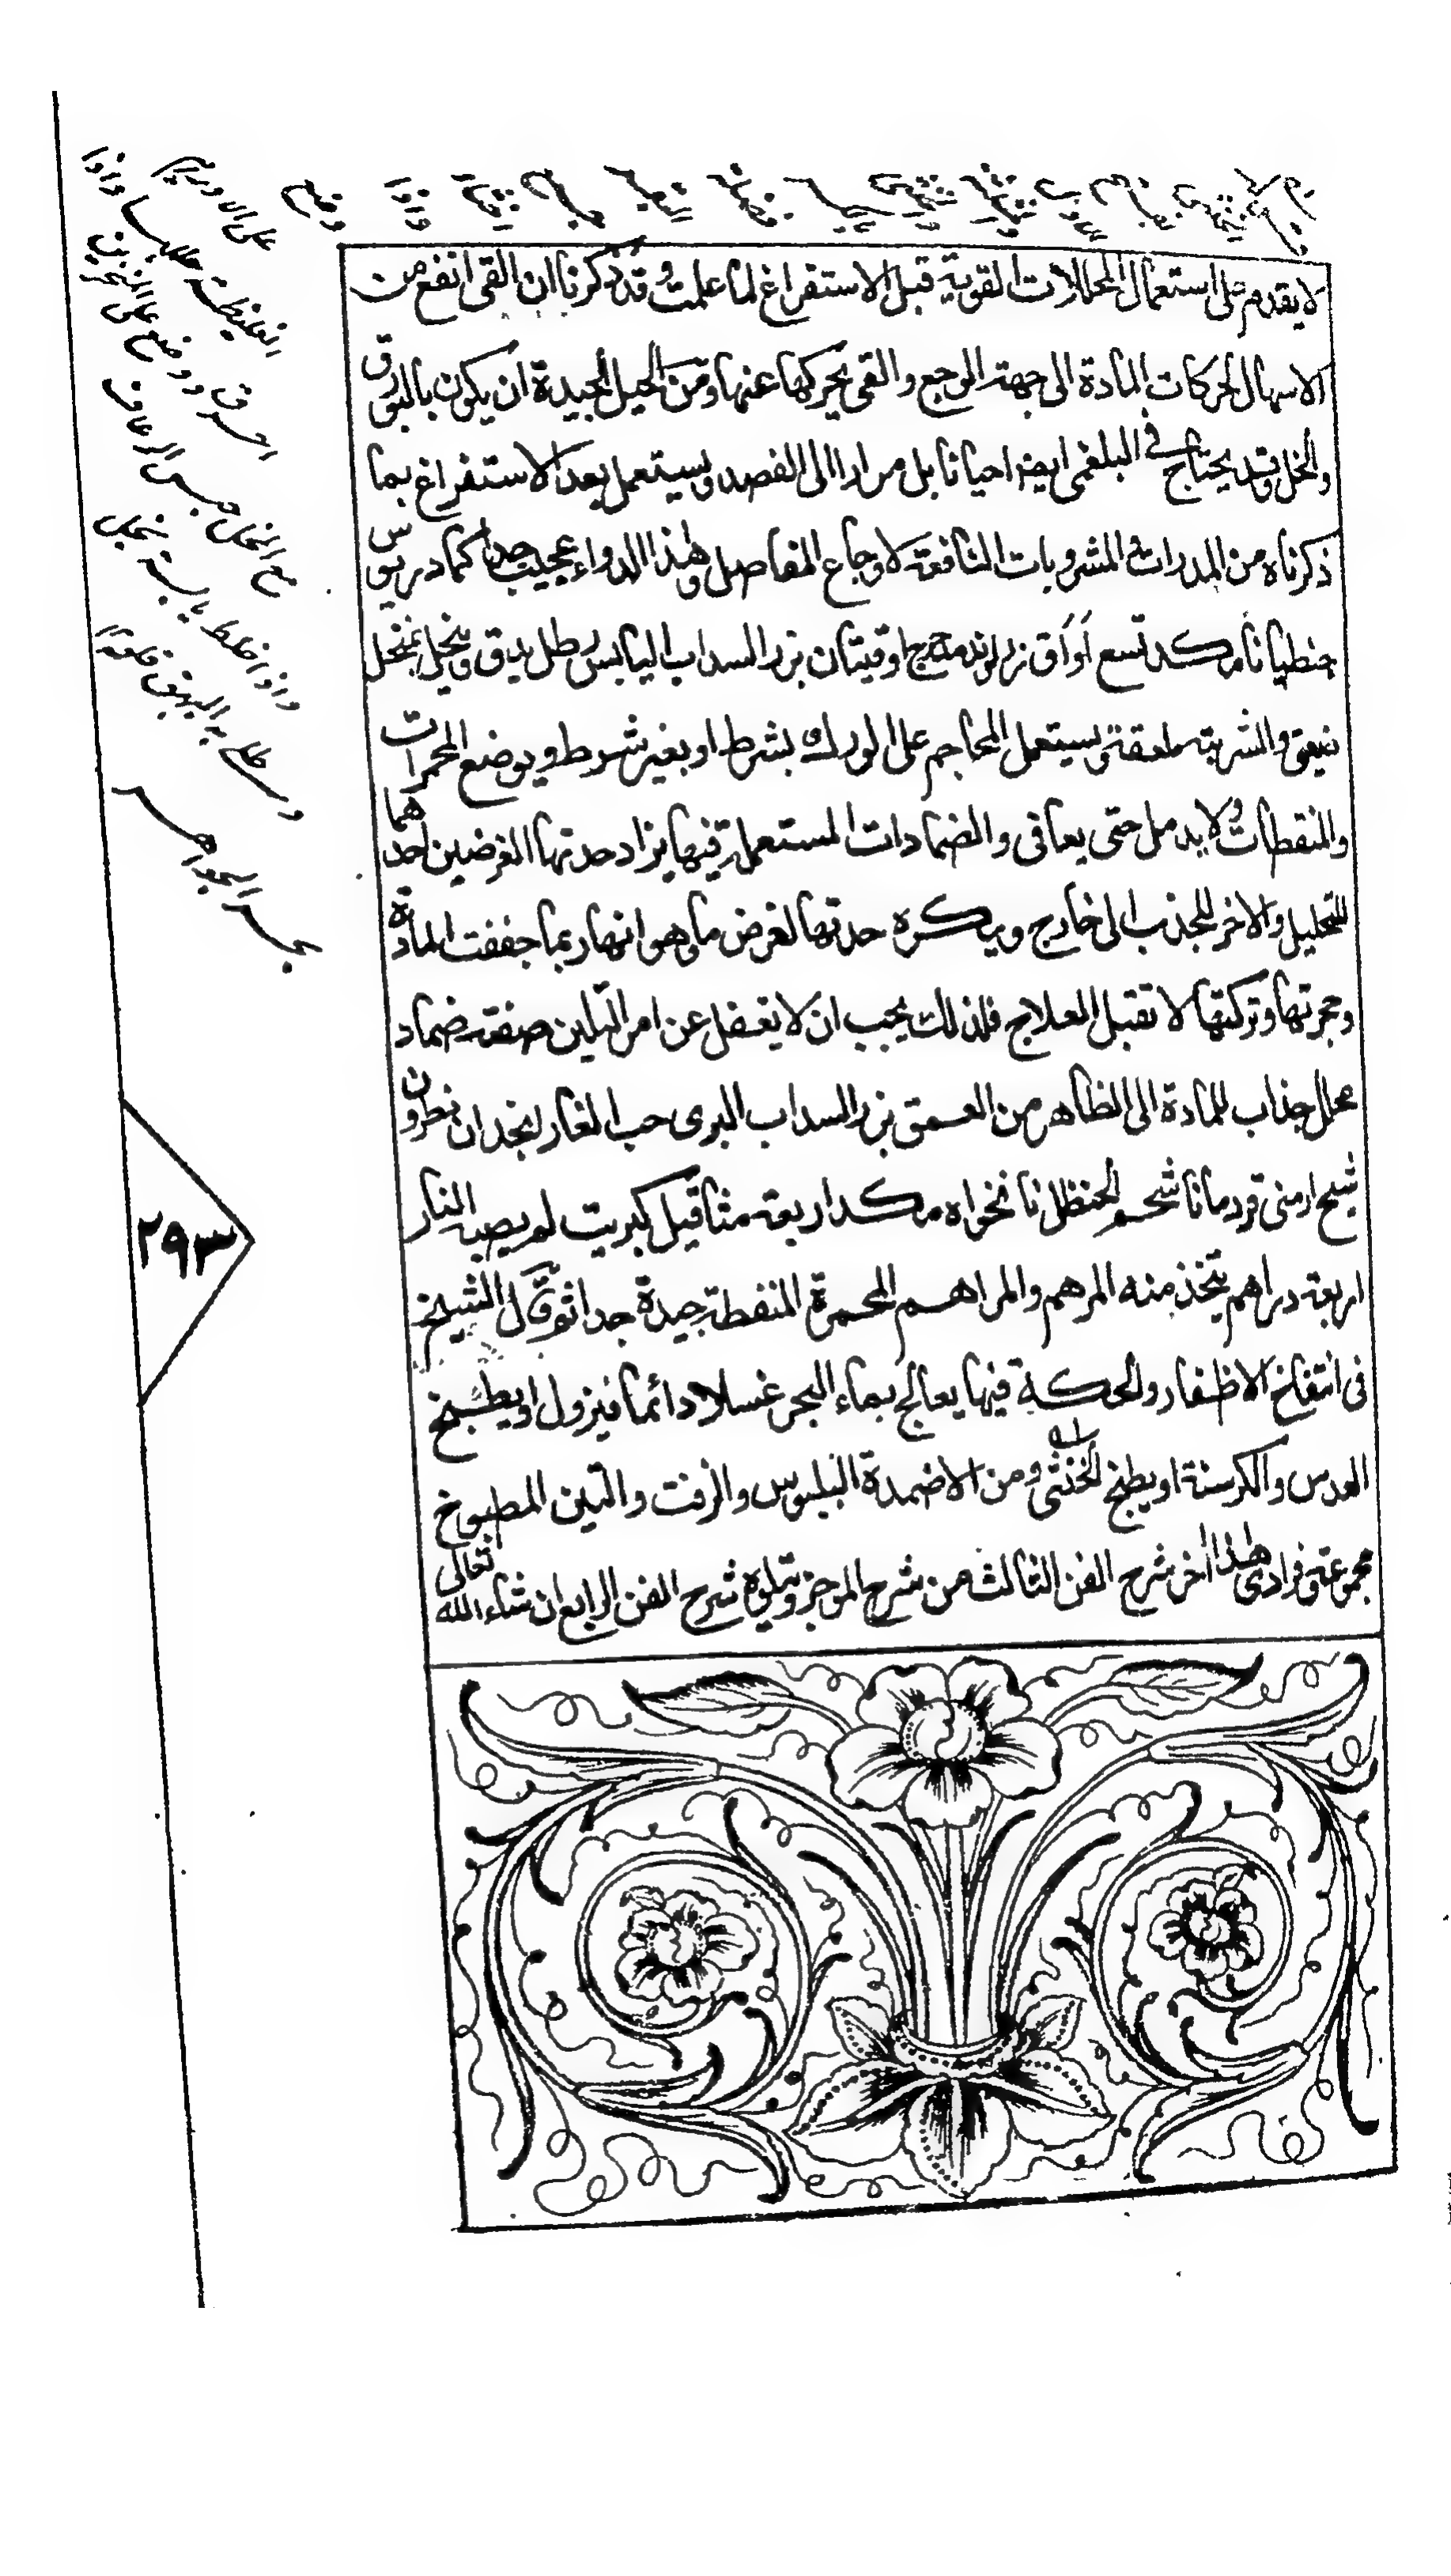 لا يقدم على استعمال المحللات القوية قبل الاستفراغ لما علمت وقد ذكرنا ان القى انفع من
الاسهال لحركات المادة الى جهة الوجع والقى يحركها عنها ومن الحيل الجيدة ان يكون بالبورق
والخل وقد يحتاج فى البلغمى ايضا احيانا بل مرارا الى الفصد ويستعمل بعد الاستفراغ بما
ذكرناه من المدرات والمشروبات النافعة لاوجاع المفاصل وهذا الدواء عجيب جدا كمادريوس
جنطيانا من كد تسع اواق زراوند مدحرج اوقيتان بزر السداب اليابس رطل يدق وينخل بمنخل
ضيق والشربة ملعقة ويستعمل المحاجم على الورك بشرط او بغير شرط ويوضع المحمرات
والمنفطات ولا يدمل حتى يعافى والضمادات المستعملة فيها يزاد حدتها الغرضين احدهما
للتحليل والاخر للجذب الى خارج ويكره حدتها لغرض ما وهو انها ربما جففت المادة
وحجرتها وتركتها لا تقبل العلاج فلذلك يجب ان لا يغفل عن امر التليين صفة ضماد
محلل جذاب للمادة الى الظاهر من العمق بزر السداب البرى حب الغار انجدان نطرون
شيح ارمنى قردمانا شحم الحنظل نانخواه من كد اربعة مثاقيل كبريت لم يصبه النار
اربعة دراهم يتخذ منه المرهم والمراهم المحمرة المنفطة جيدة جدا ثم قال الشيخ
فى انتفاخ الاظفار والحكة فيها يعالج بماء البحر غسلا دائما فيزول او يطبخ
العدس والكرسنة او يطبخ الخنثى ومن الاضمدة البلبوس والزفت والتين المطبوخ
مجموعة وفرادى هذا اخر شرح الفن الثالث من شرح الموجز ويتلوه شرح الفن الرابع ان شاء الله تعالى
على الاورام
الغليظة حللها واذا
احرق ووضع على المنخرين
مع الخل حبس الرعاف
واذا خلط يابسة بخل
وطلى به البهق قلعه
بحر الجواهر
٢٩٣